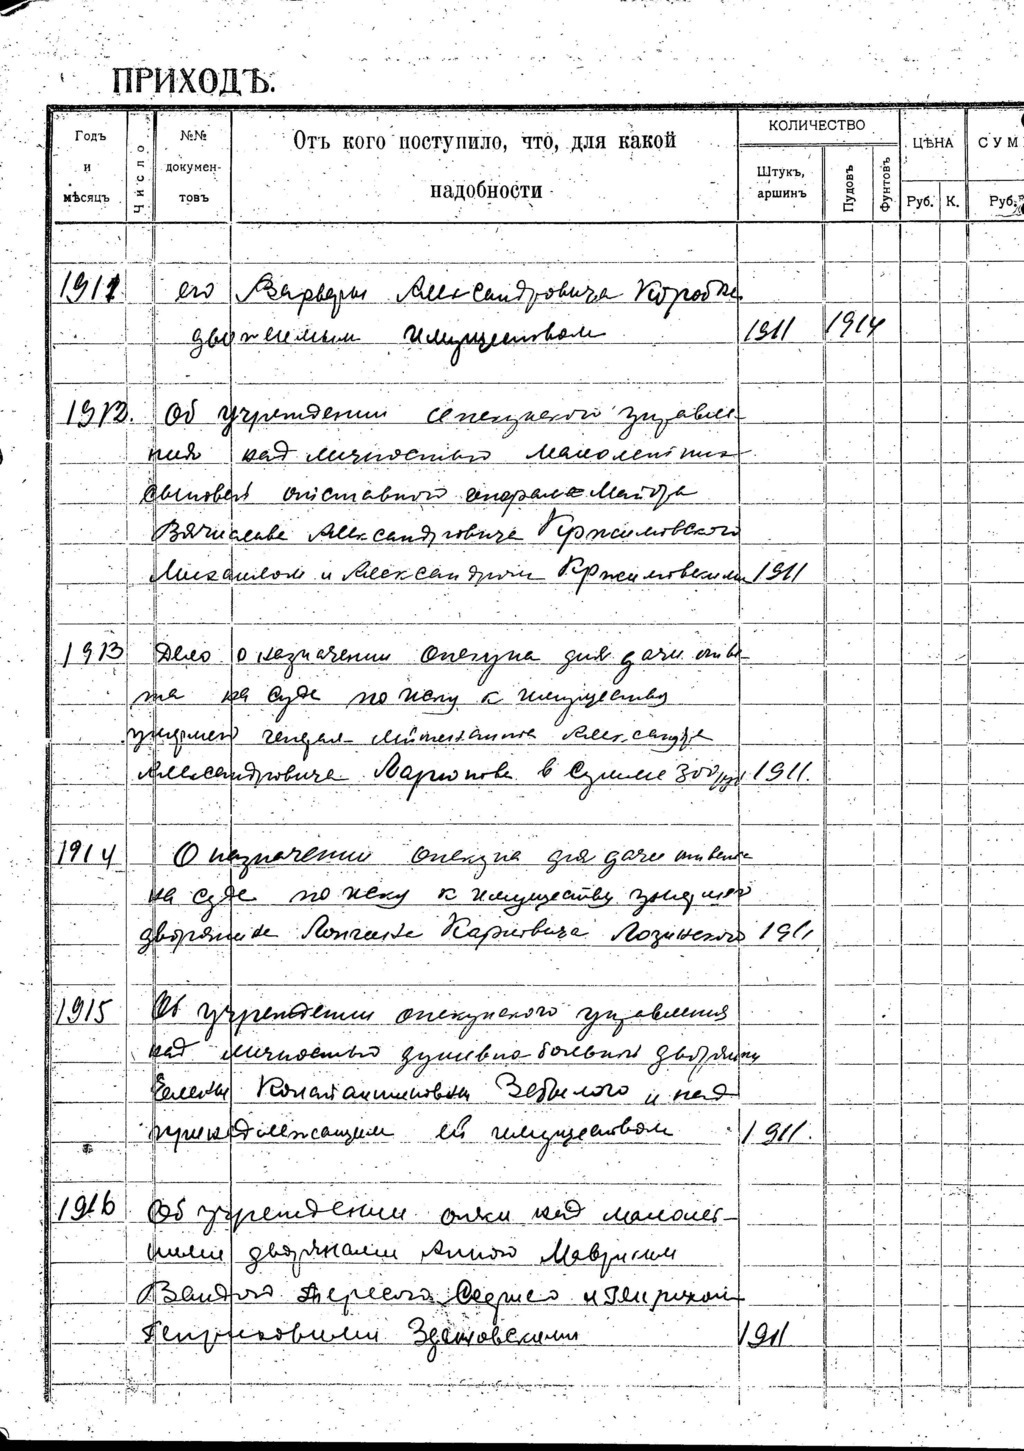 ПРИХОДЪ.
Годъ и мѣсяцъ
Число
№№ документовъ
Отъ кого поступило, что, для какой надобности
КОЛИЧЕСТВО
Штукъ, аршинъ
Пудовъ
Фунтовъ
ЦѢНА
Руб. К.
СУМ
Руб.
1911 его Варвары Александровича Коробки
движимым имуществом 1911 1914
1912. Об учреждении опекунского управле-
ния над личностью малолетних
сыновей отставного генерал-майора
Вячеслава Александровича Кржимовского
Михаилом и Александром Кржимовскими 1911
1913 Дело о назначении опекуна для дачи отве-
та на суде по иску к имуществу
умершего генерал-лейтенанта Александра
Александровича Ларионова в сумме 300 руб 1911.
1914 О назначении опекуна для дачи ответа
на суде по иску к имуществу умершего
дворянина Лонгина Карловича Лозинского 1911
1915 Об учреждении опекунского управления
над личностью душевно-больной дворянки
Елены Константиновны Забелого и над
принадлежащим ей имуществом 1911.
1916 Об учреждении опеки над малолет-
ними дворянами Анною
Вандою Тересою и Генрихом
Генриховыми Здановскими 1911